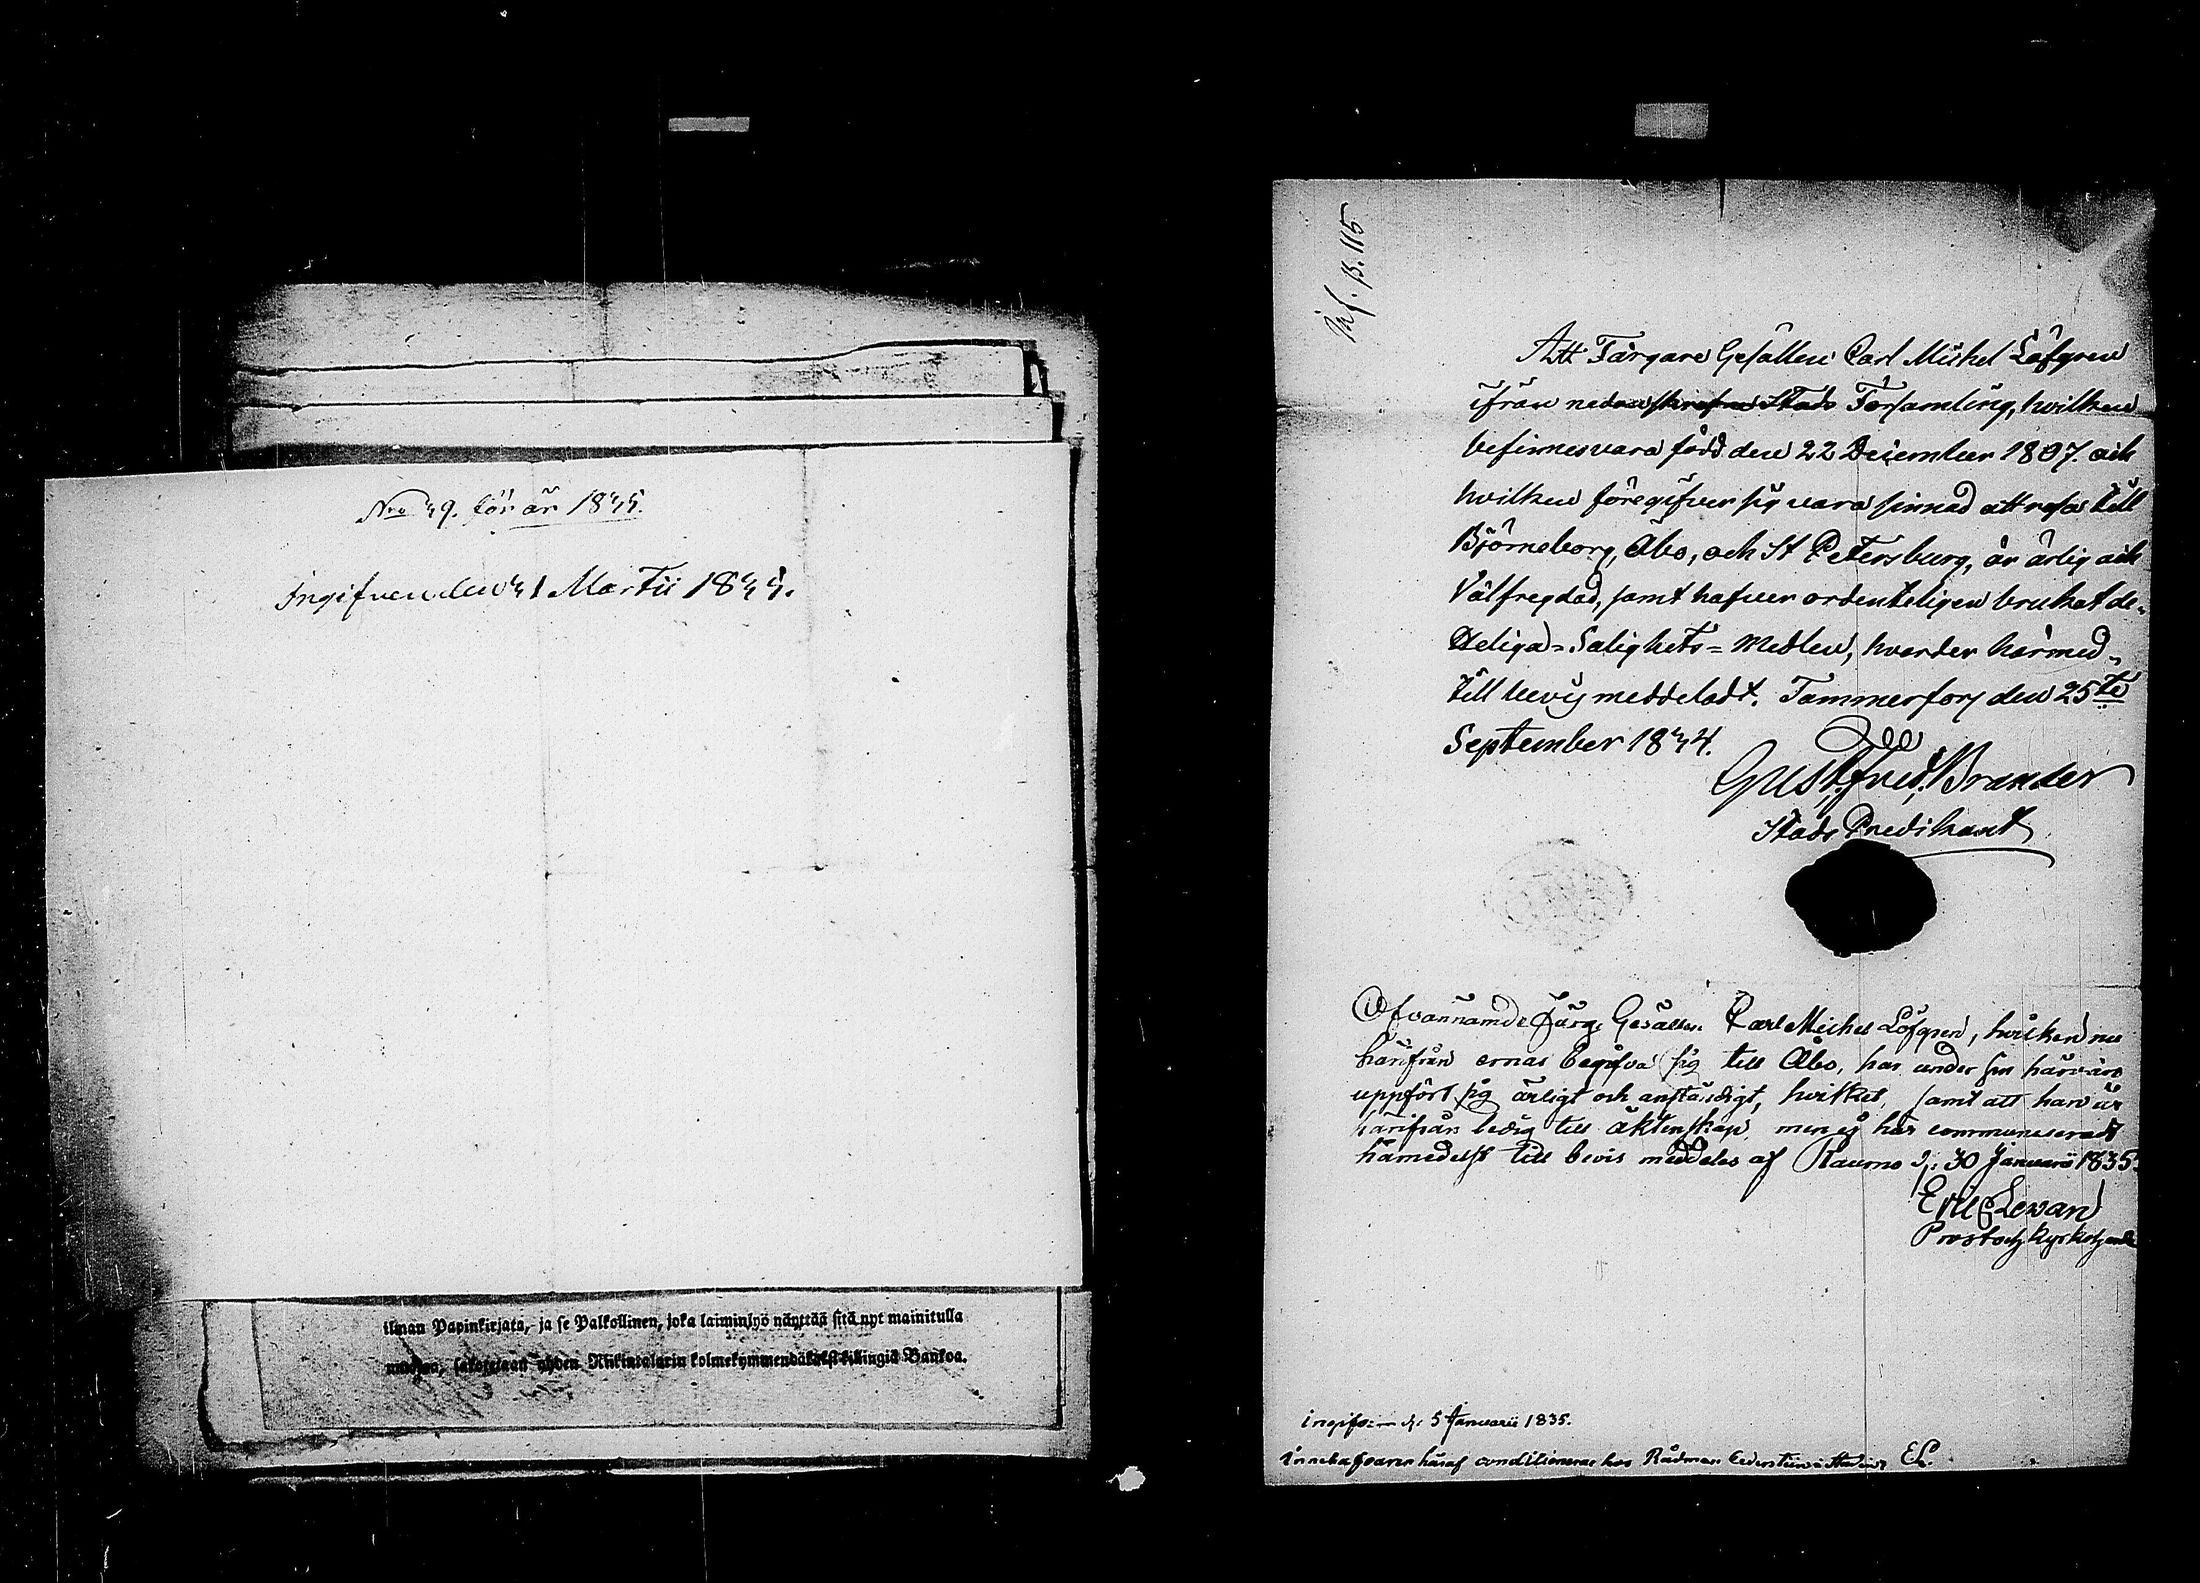 Nro 39. för år 1835.
Ingifven den 31 Martii 1835.
ilman Papinkirjata, ja se Palkollinen, joka laiminlyö näyttää sitä nyt mainitulla
muotoa, sakotetaan yhden Riikintalarin kolmekymmendäkaksi killingiä Bankoa.
Inf. p. 115
Att Färgare Gesällen Carl Michel Löfgren
ifrån nedanskrefne Stads Församling, hvilken
befinnes vara född den 22 December 1807. och
hvilken föregifver sig vara sinnad att resa till
Björneborg, Åbo, och St Petersburg, är ärlig och
Välfregdad, samt hafver ordenteligen brukat de
Heliga=Salighets=Medlen, hvarder härmed
till bevis meddeladt. Tammerfors den 25te
September 1834.
Gust. Fred. Brander
Stads Predikant
Ofvannämnde Färg. Gesällen Carl Michel Löfgren, hvilken nu
härifrån ernar begifva sig till Åbo, har under sin härvaro
uppfört sig ärligt och anständigt, hvilket, samt att han är
härifrån ledig till äktenskap, men ej här communicerat
härmedelst till bevis meddelas af Raumo d. 30 Januarii 1835.
Eric Lewan
Prost och Kyrkoherde
ingifven d: 5 Januarii 1835.
Innehafvaren häraf conditionerar hos Rådman i Staden EL.